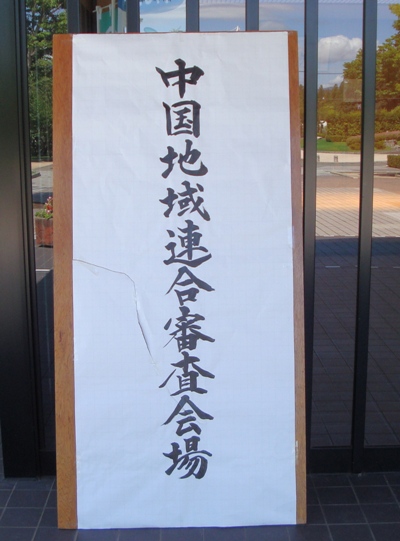 中国地域連合審査会場